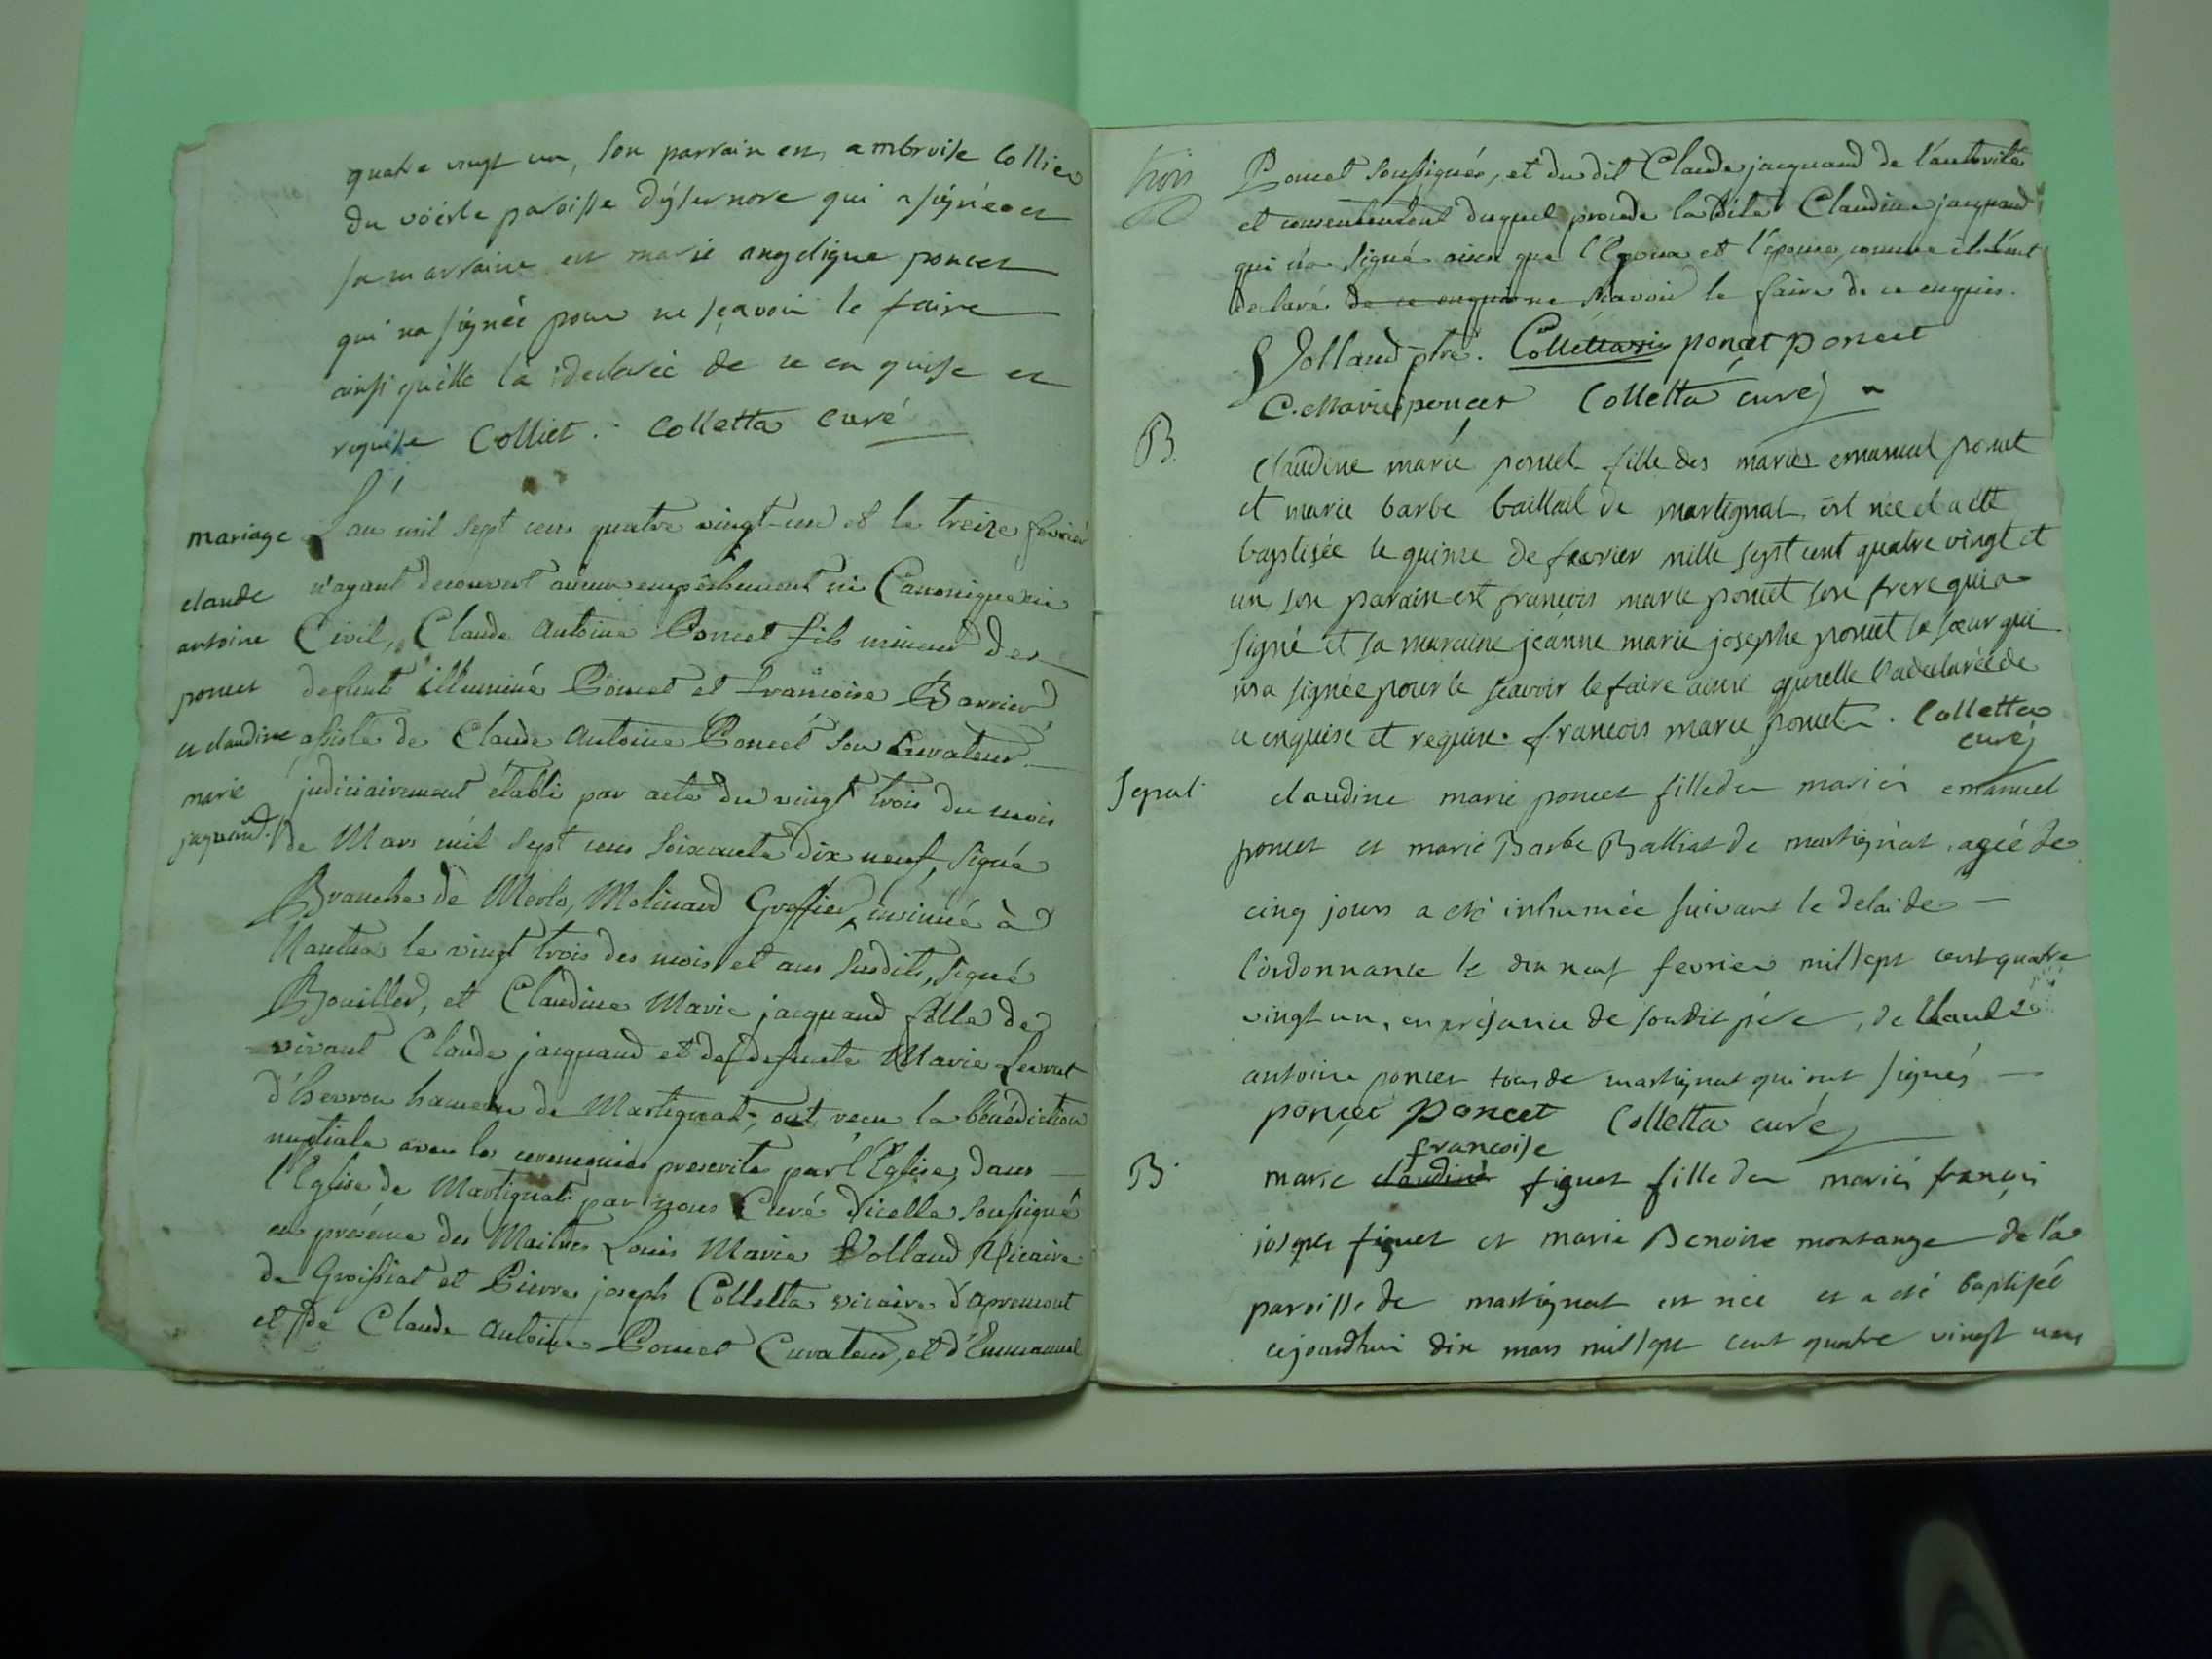 quatre vingt un, son parrain est ambroise Colliet
du voërle paroisse d'ysernore qui a signé et
sa marraine est marie angelique poncet
qui na signée pour ne sçavoir le faire
ainsi quelle la declarée de ce enquise et
requise Colliet. Colletta curé
L'an mil sept cens quatre vingt-un et le treize fevrier
n'ayant decouvert aucun empêchement ni Canonique ni
Civil, Claude Antoine Poncet fils mineur des
defunts illuminé Poncet et francoise Barrier
assisté de Claude Antoine Poncet son Curateur
judiciairement établi par acte du vingt trois du mois
de Mars mil sept cens soixante dix neuf, signé
Branche de Merlo, Molinard Greffier, insinué à
Nantua le vingt trois des mois et ans susdits, signé
Bouiller, et Claudine Marie jacquand fille de
vivant Claude jacquand et de defuncte Marie
hameau de Martignat, ont recu la bénédiction
nuptiale avec les ceremonies prescrites par l'Eglise, dans
l'Eglise de Martignat par nous Curé d'icelle soussigné
en présence des Maitres Louis Marie Volland Vicaire
de Groissiat et Pierre joseph Colletta vicaire d'apremont
et de Claude Antoine Poncet Curateur, et d'Emmanuel
mariage
claude
antoine
poncet
et claudine
marie
jaquand
trois
Poncet soussignés, et du dit Claude jacquand de l'autorité
et consentement duquel procede la dite Claudine jacquand
qui n'a signé ainsi que l'Epoux et l'épouse, comme ils l'ont
declaré de ce enquis ne sçavoir le faire de ce enquis.
Volland ptre. Colletta poncet poncet
C. Marie poncet Colletta curé
B.
claudine marie poncet fille des mariés emanuel poncet
et marie barbe balliat de martignat est née et a été
baptisée le quinze de fevrier mille sept cent quatre vingt et
un son parain est francois marie poncet son frere qui a
signé et sa maraine jeanne marie josephe poncet sa sœur qui
na signée pour le sçavoir le faire ainsi quelle la declarée de
ce enquise et requise. francois marie poncet. Colletta
curé
Sepul.
claudine marie poncet fille des mariés emanuel
poncet et marie Barbe Balliat de martignat, agée de
cinq jours a été inhumée suivant le delai de
l'ordonnance le dix neuf fevrier mil sept cent quatre
vingt un, en présance de sondit père, de Claude
antoine poncet tous de martignat qui ont signés
poncet poncet Colletta curé
B.
francoise
marie claudine figuet fille des mariés françois
joseph figuet et marie Benoite montange de la
paroisse de martignat est née et a été baptisée
cejourdhui dix mars mil sept cent quatre vingt un